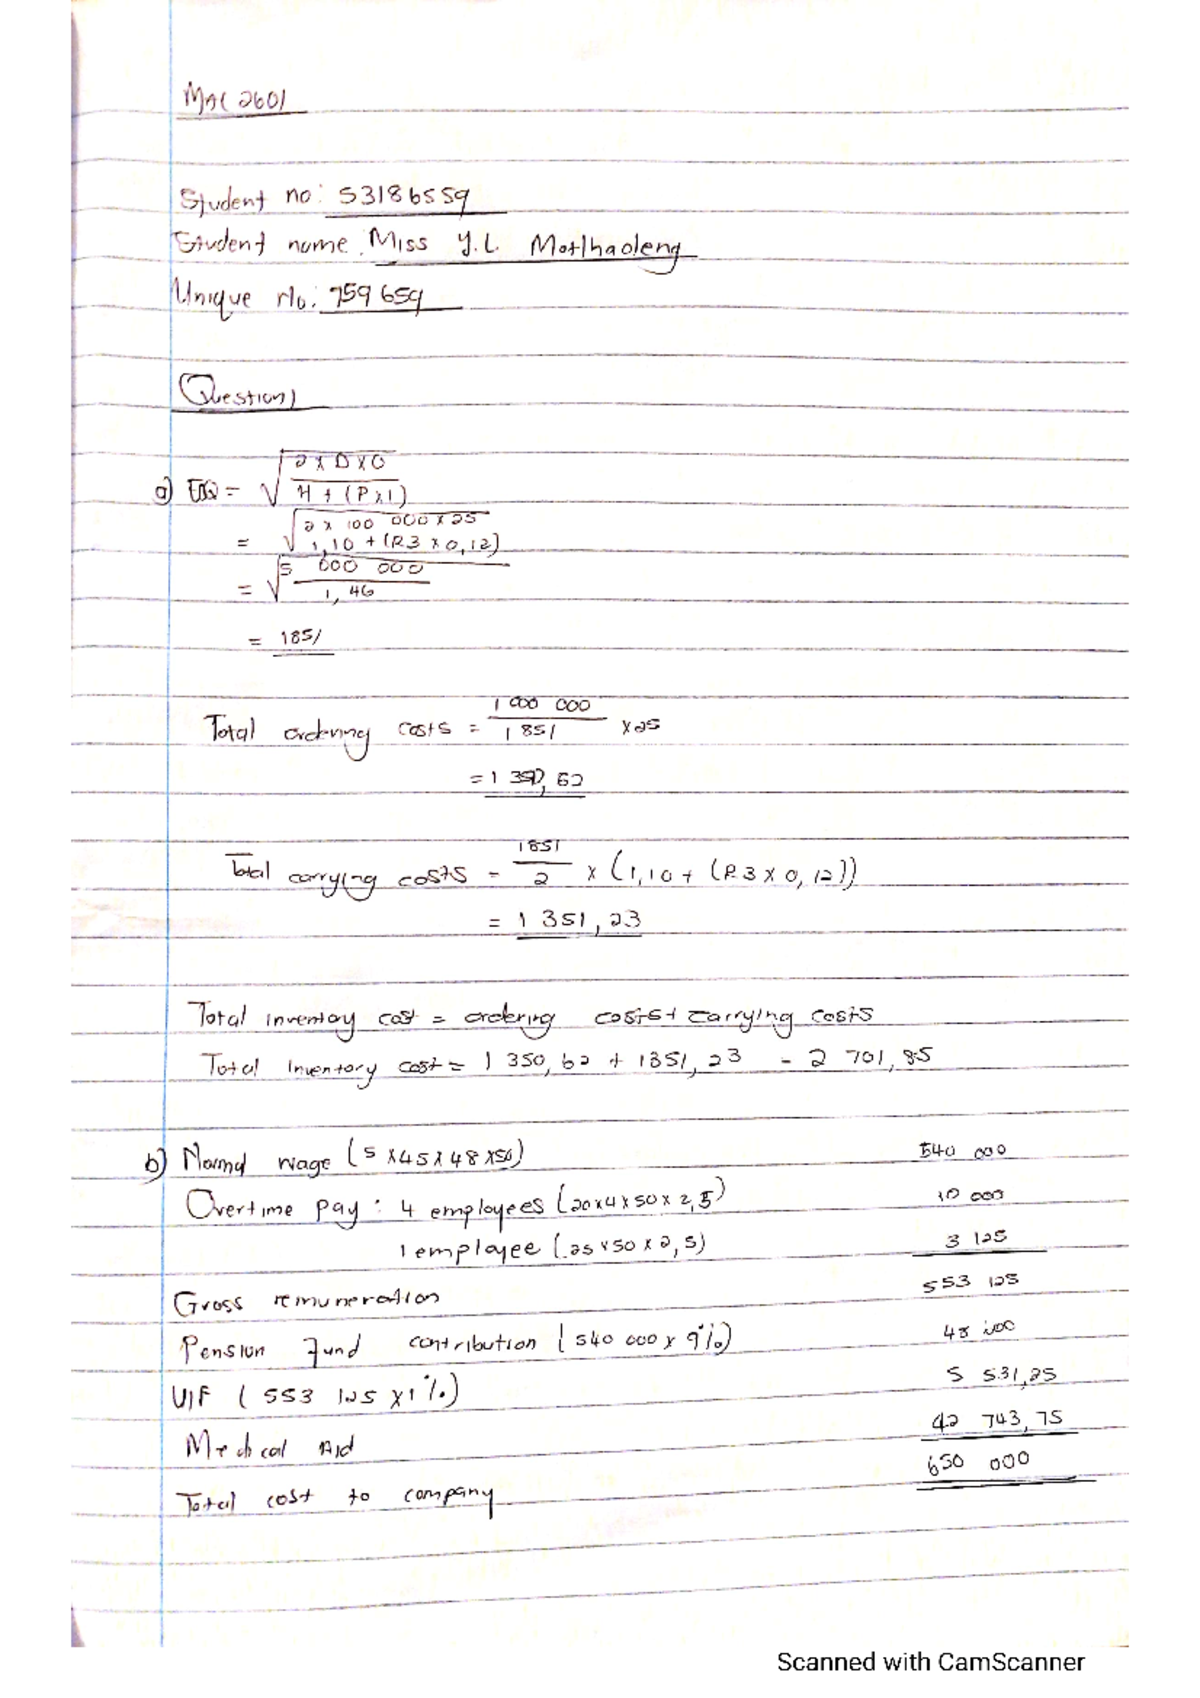 MAC 2601
Student no: 53186559
Student name: Miss Y.L. Motlhaoleng
Unique no: 759659
Question 1
a) EOQ = √ 2 x D x O
H + (P x I)
= √ 2 x 100 000 x 25
1,10 + (R3 x 0,12)
= √ 5 000 000
1,46
= 1851
Total ordering costs = 1 000 000 / 1 851 x 25
= 1 350,62
Total carrying costs = 1851 / 2 x (1,10 + (R3 x 0,12))
= 1 351,23
Total inventory cost = ordering costs + carrying costs
Total inventory cost = 1 350,62 + 1351,23 = 2 701,85
b) Normal wage (5 x 45 x 48 x 50) 540 000
Overtime pay: 4 employees (20 x 4 x 50 x 2,5) 10 000
1 employee (25 x 50 x 2,5) 3 125
Gross remuneration 553 125
Pension fund contribution (540 000 x 9%)
UIF (553 125 x 1%) 5 531,25
Medical Aid 42 743,75
Total cost to company 650 000
Scanned with CamScanner